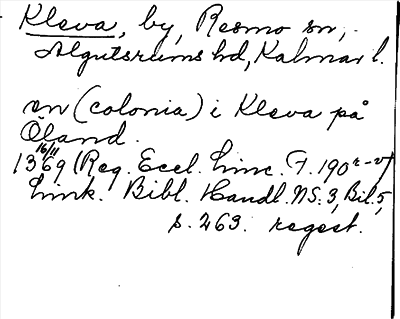 Kleva, by, Resmo sn,
Algutsrums hd, Kalmar l.
en (colonia) i Kleva på
Öland.
16/11
1369 (Reg. Eccl. Linc. F. 190 r-v,
Link. Bibl. Handl. NS. 3, Bil. 5,
s. 263. regest.